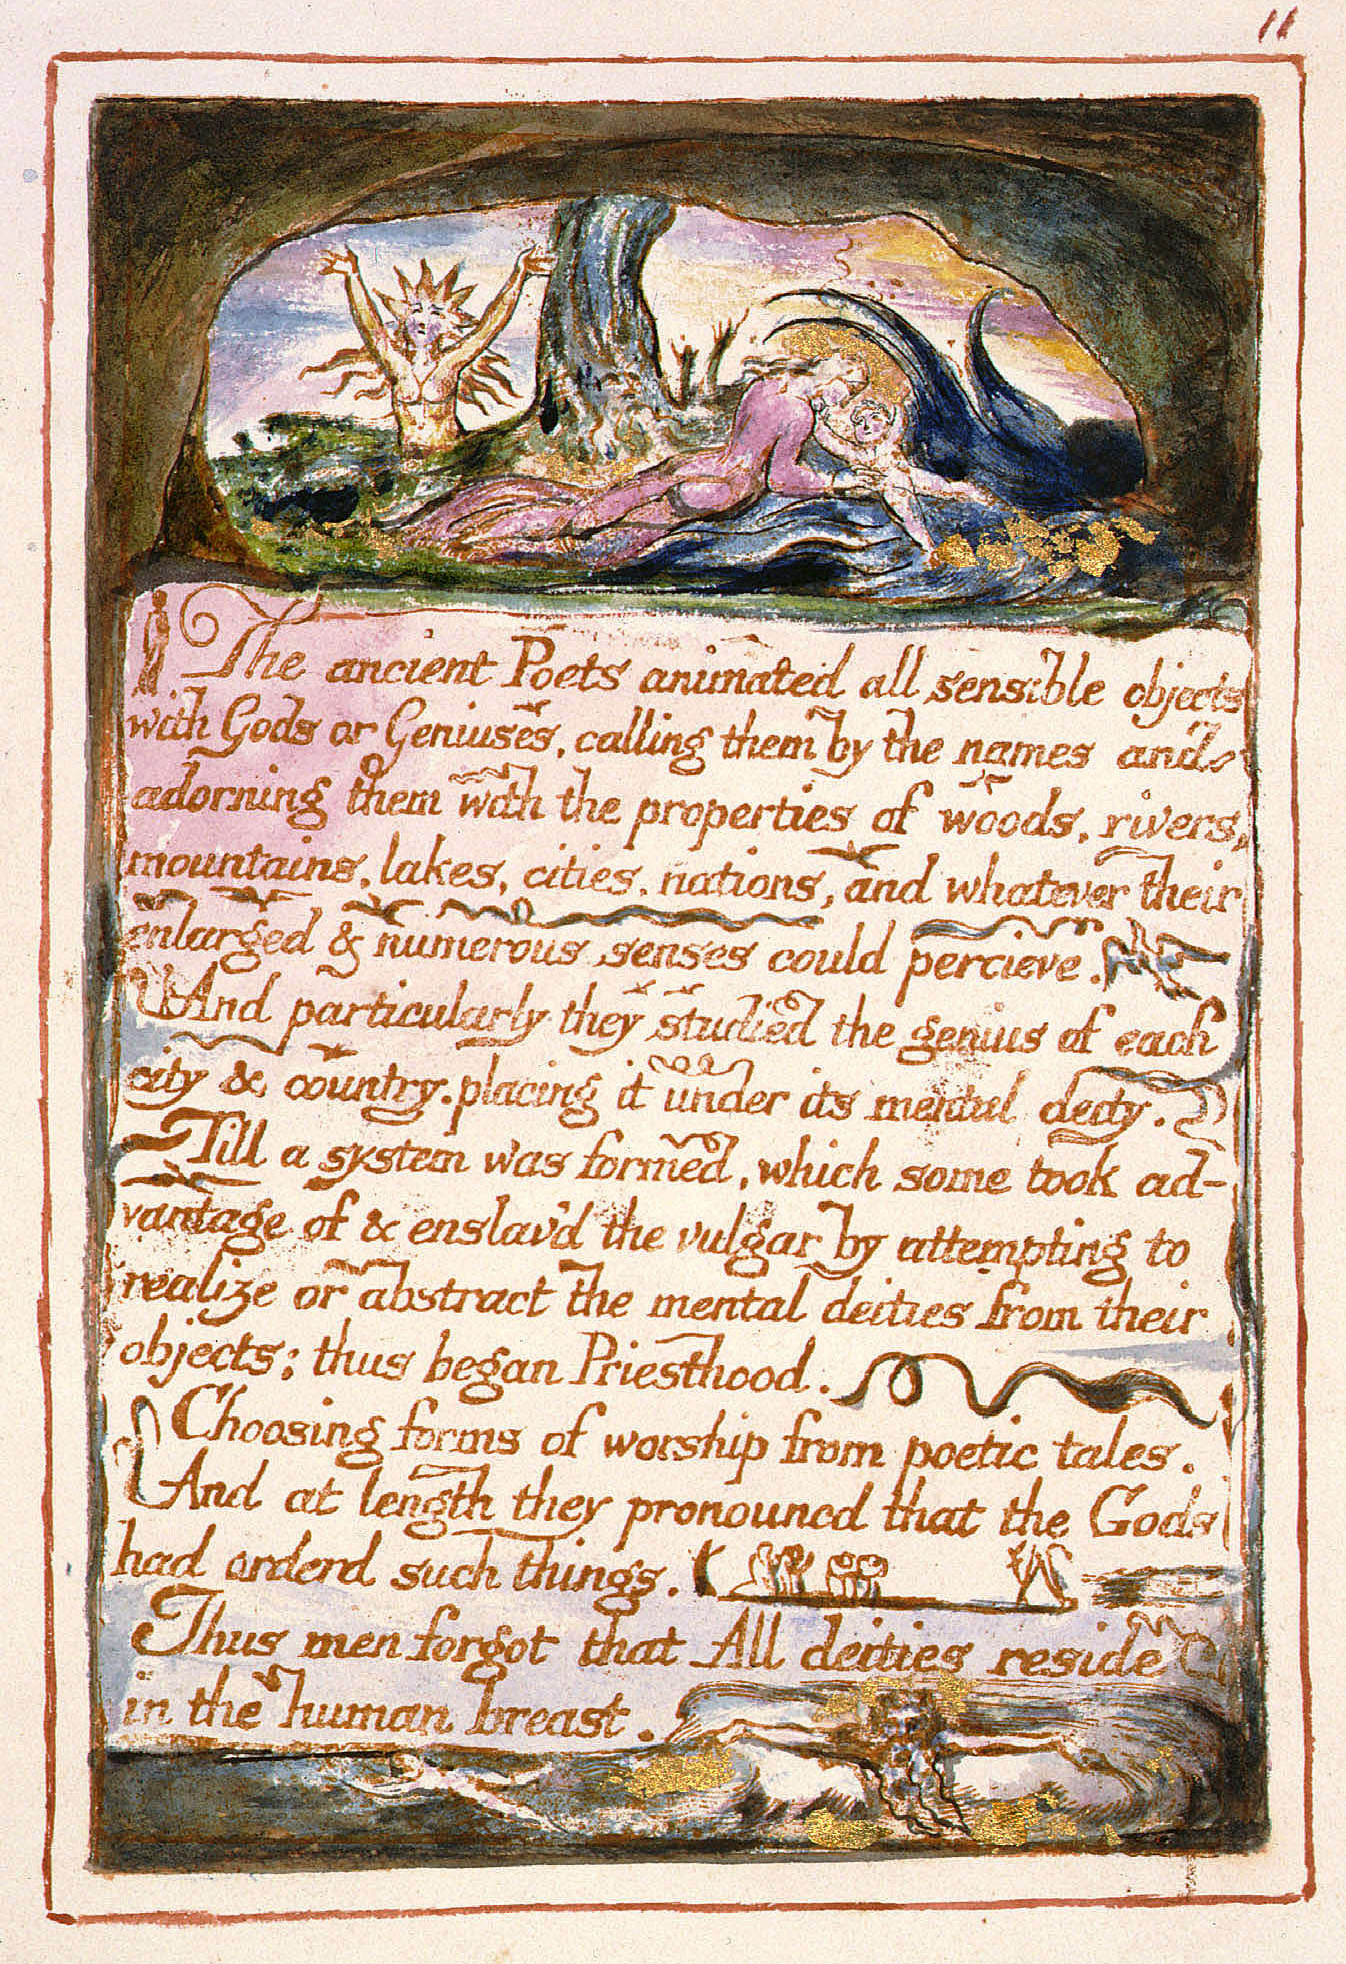 11
The ancient Poets animated all sensible objects
with Gods or Geniuses, calling them by the names and
adorning them with the properties of woods, rivers,
mountains, lakes, cities, nations, and whatever their
enlarged & numerous senses could percieve.
And particularly they studied the genius of each
city & country. placing it under its mental deity.
Till a system was formed, which some took ad-
vantage of & enslav'd the vulgar by attempting to
realize or abstract the mental deities from their
objects; thus began Priesthood.
Choosing forms of worship from poetic tales.
And at length they pronouncd that the Gods
had orderd such things.
Thus men forgot that All deities reside
in the human breast.